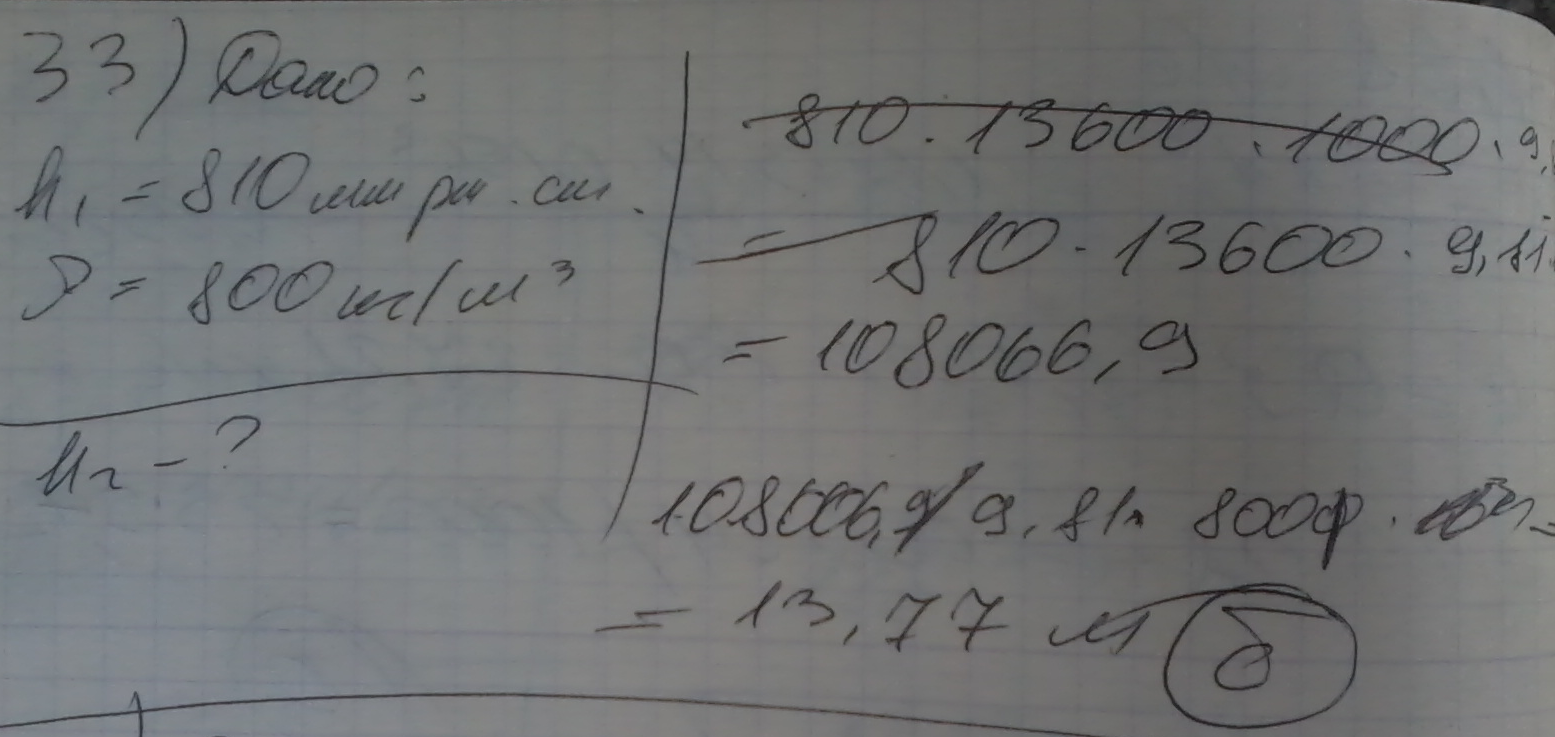 33) Дано:
h₁ = 810 мм рт. ст.
ρ = 800 кг/м³
h₂ - ?
810 · 13600 · 1000 · 9,
= 810 · 13600 · 9,81
= 108066,9
108066,9/ 9,81 800
= 13,77 м б